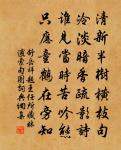 清新半樹橫枝向
冷淡暗香疏影詩
誰見當時苦吟態
只應童鶴在旁知
舒岳祥題王任所藏林
逋索句圖詞典網集